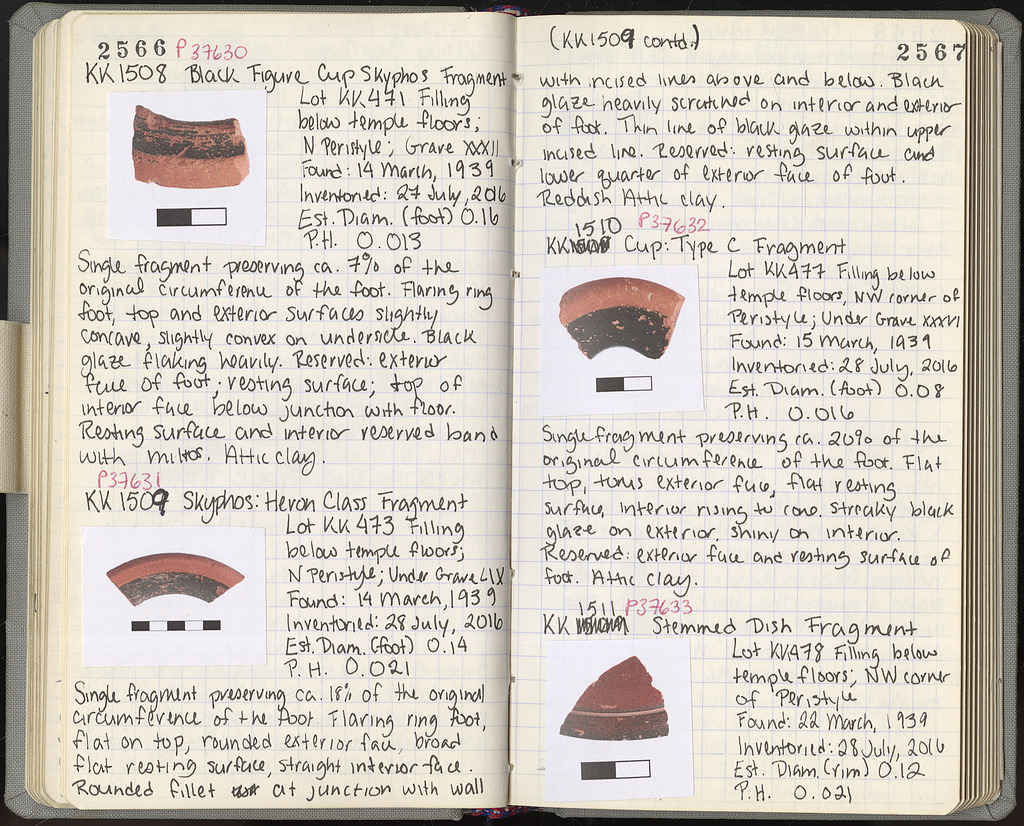 2566 P37630
KK1508 Black Figure Cup Skyphos Fragment
Lot KK471 Filling
below temple floors;
N Peristyle; Grave XXXII
Found: 14 March, 1939
Inventoried: 27 July, 2016
Est. Diam. (foot) 0.16
P.H. 0.013
Single fragment preserving ca. 7% of the
original circumference of the foot. Flaring ring
foot, top and exterior surfaces slightly
concave, slightly convex on underside. Black
glaze flaking heavily. Reserved: exterior
face of foot; resting surface; top of
interior face below junction with floor.
Resting surface and interior reserved band
with miltos. Attic clay.
P37631
KK 1509 Skyphos: Heron Class Fragment
Lot KK 473 Filling
below temple floors;
N Peristyle; Under Grave LIX
Found: 14 March, 1939
Inventoried: 28 July, 2016
Est. Diam. (foot) 0.14
P.H. 0.021
Single fragment preserving ca. 18% of the original
circumference of the foot. Flaring ring foot,
flat on top, rounded exterior face, broad
flat resting surface, straight interior face.
Rounded fillet at junction with wall
(KK1509 contd.)
2567
with incised lines above and below. Black
glaze heavily scratched on interior and exterior
of foot. Thin line of black glaze within upper
incised line. Reserved: resting surface and
lower quarter of exterior face of foot.
Reddish Attic clay.
1510 P37632
KK Cup: Type C Fragment
Lot KK477 Filling below
temple floors, NW corner of
Peristyle; Under Grave XXXVI
Found: 15 March, 1939
Inventoried: 28 July, 2016
Est. Diam. (foot) 0.08
P.H. 0.016
Single fragment preserving ca. 20% of the
original circumference of the foot. Flat
top, torus exterior face, flat resting
surface, interior rising to cone. Streaky black
glaze on exterior, shiny on interior.
Reserved: exterior face and resting surface of
foot. Attic clay.
1511 P37633
KK Stemmed Dish Fragment
Lot KK478 Filling below
temple floors, NW corner
of Peristyle
Found: 22 March, 1939
Inventoried: 28 July, 2016
Est. Diam. (rim) 0.12
P.H. 0.021